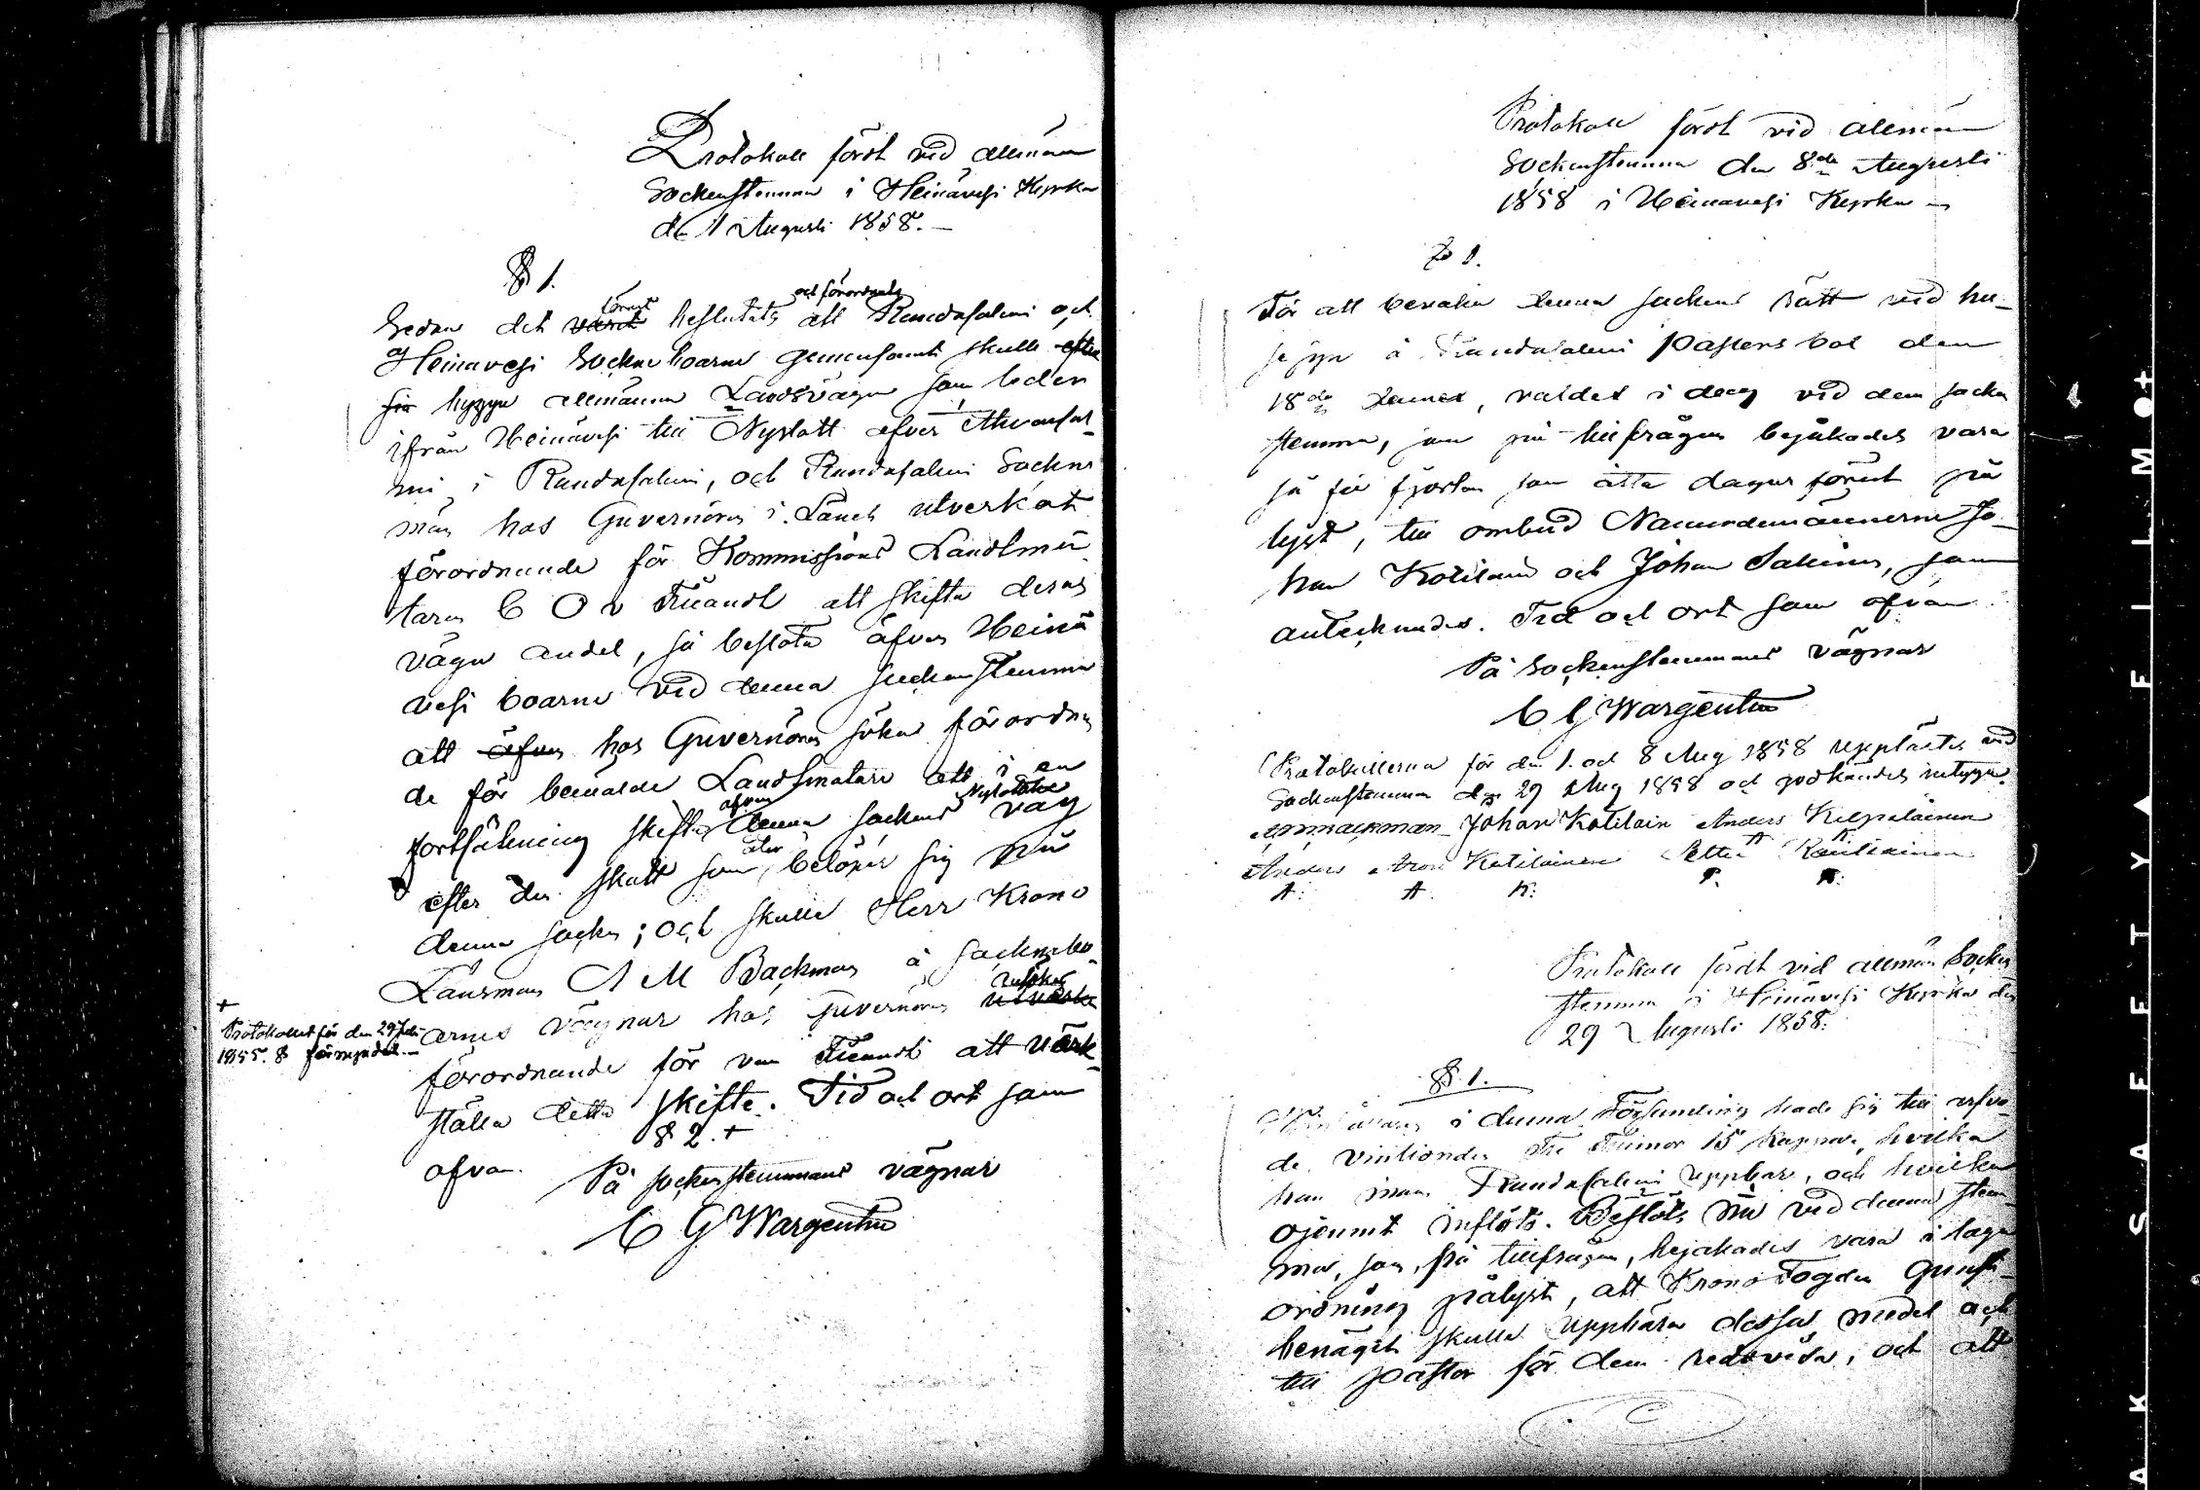 Protokoll fördt vid allmänn
Sockenstemma i Heinävesi Kyrka
d. 1 Augusti 1858.
§ 1.
förut och förordnats
Sedan det varit beslutats att Randasalmi och
Heinavesi Sockne boarne gemensamt skulle efter
sig bygga allmänna Landsvägen som leder
ifrån Heinävesi till Nyslott öfver Ahvensal-
mi i Randasalmi, och Randasalmi Sockne
män hos Guvernören i Länet utverkat
förordnande för Kommissions Landtmä
taren C O v Fieandt att skifta deras
vägu andel, så beslöto äfven Heinä
vesi boarne vid denna Sockenstemma
att äfven hos Guvernören söka förordnan
de för bemälde Landtmätare att i en
fortsättning skifta äfven denna sockens Nyslotts väg
efter den skatt som belöper sig på
denna socken; och skulle Herr Krono
Länsman A M Backman å Socknebo-
arnes vägnar hos Guvernören utverka
förordnande för von Fieandt att verk-
ställa detta skifte. Tid och ort som
§ 2. +
ofvan.
+
Protokollet för den 29 Juli
1855. §
På sockenstemmans vägnar
C G Wargentin
Protokoll fördt vid allmän
Sockenstemma den 8de Augusti
1858 i Heinavesi Kyrka
§ 1.
För att bevaka denna sockens rätt vid hu-
sesyn å Randasalmi pastorsbol den
18de dennes, valdes i dag vid den socken
stemma, som på tillfrågan bejakades vara
så för fjorton som åtta dagar förut på
lyst, till ombud Nämndemännerne Jo-
han Kotilain och Johan Salinen, som
antecknades. Tid och ort som ofvan
På Sockenstemmans vägnar
C G Wargentin
Protokollerna för den 1. och 8 Aug 1858 upplästes vid
Sockenstemman den 29 Aug 1858 och godkändes intyga
Johan Kotilain Anders Kilpeläinen
Anders Aron Kotilainen Petter Rautiainen
A. A K:
Protokoll fördt vid allmän Socken
stemma i Heinävesi Kyrka den
29 Augusti 1858.
§ 1.
i denna Församling hade sig till
de Tre Tunnor 15 kappar, hvilka
han inom Randasalmi uppbar, och hvilka
ojemnt inflöto. Beslöts nu vid denna stem-
ma, som, på tillfrågan, bejakades vara i laga
ordning pålyst, att Krono Fogden gunst-
benäget skulle uppbära dessa medel och
till pastor för dem redovisa, och att